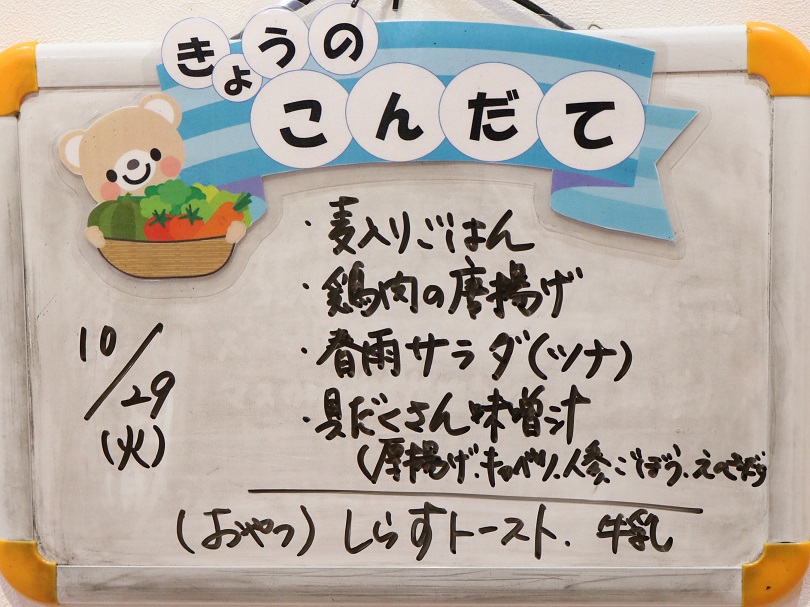 きょうの
こんだて
・麦入りごはん
・鶏肉の唐揚げ
10/29
(火)
・春雨サラダ(ツナ)
・具だくさん味噌汁
(厚揚げ、キャベツ、人参、ごぼう、
(おやつ) しらすトースト、牛乳